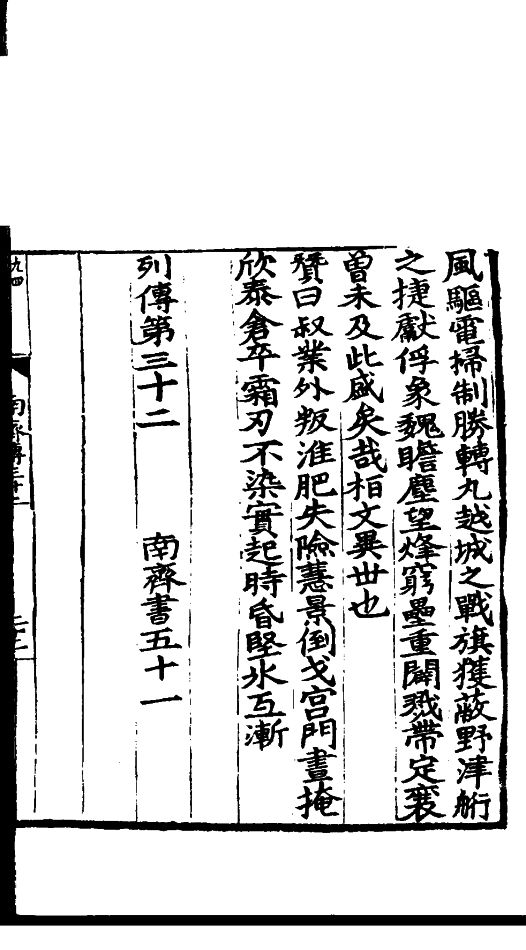 風驅電掃制勝轉丸越城之戰旗獲蔽野津舫
之捷獻俘象魏瞻塵望烽窮壘重闢戮帶定襄
曾未及此盛矣哉桓文異世也
贊曰叔業外叛淮肥失險慧景倒戈宫門晝掩
欣泰倉卒霜刃不染實起時昏堅氷互漸
列傳第三十二　　南齊書五十一